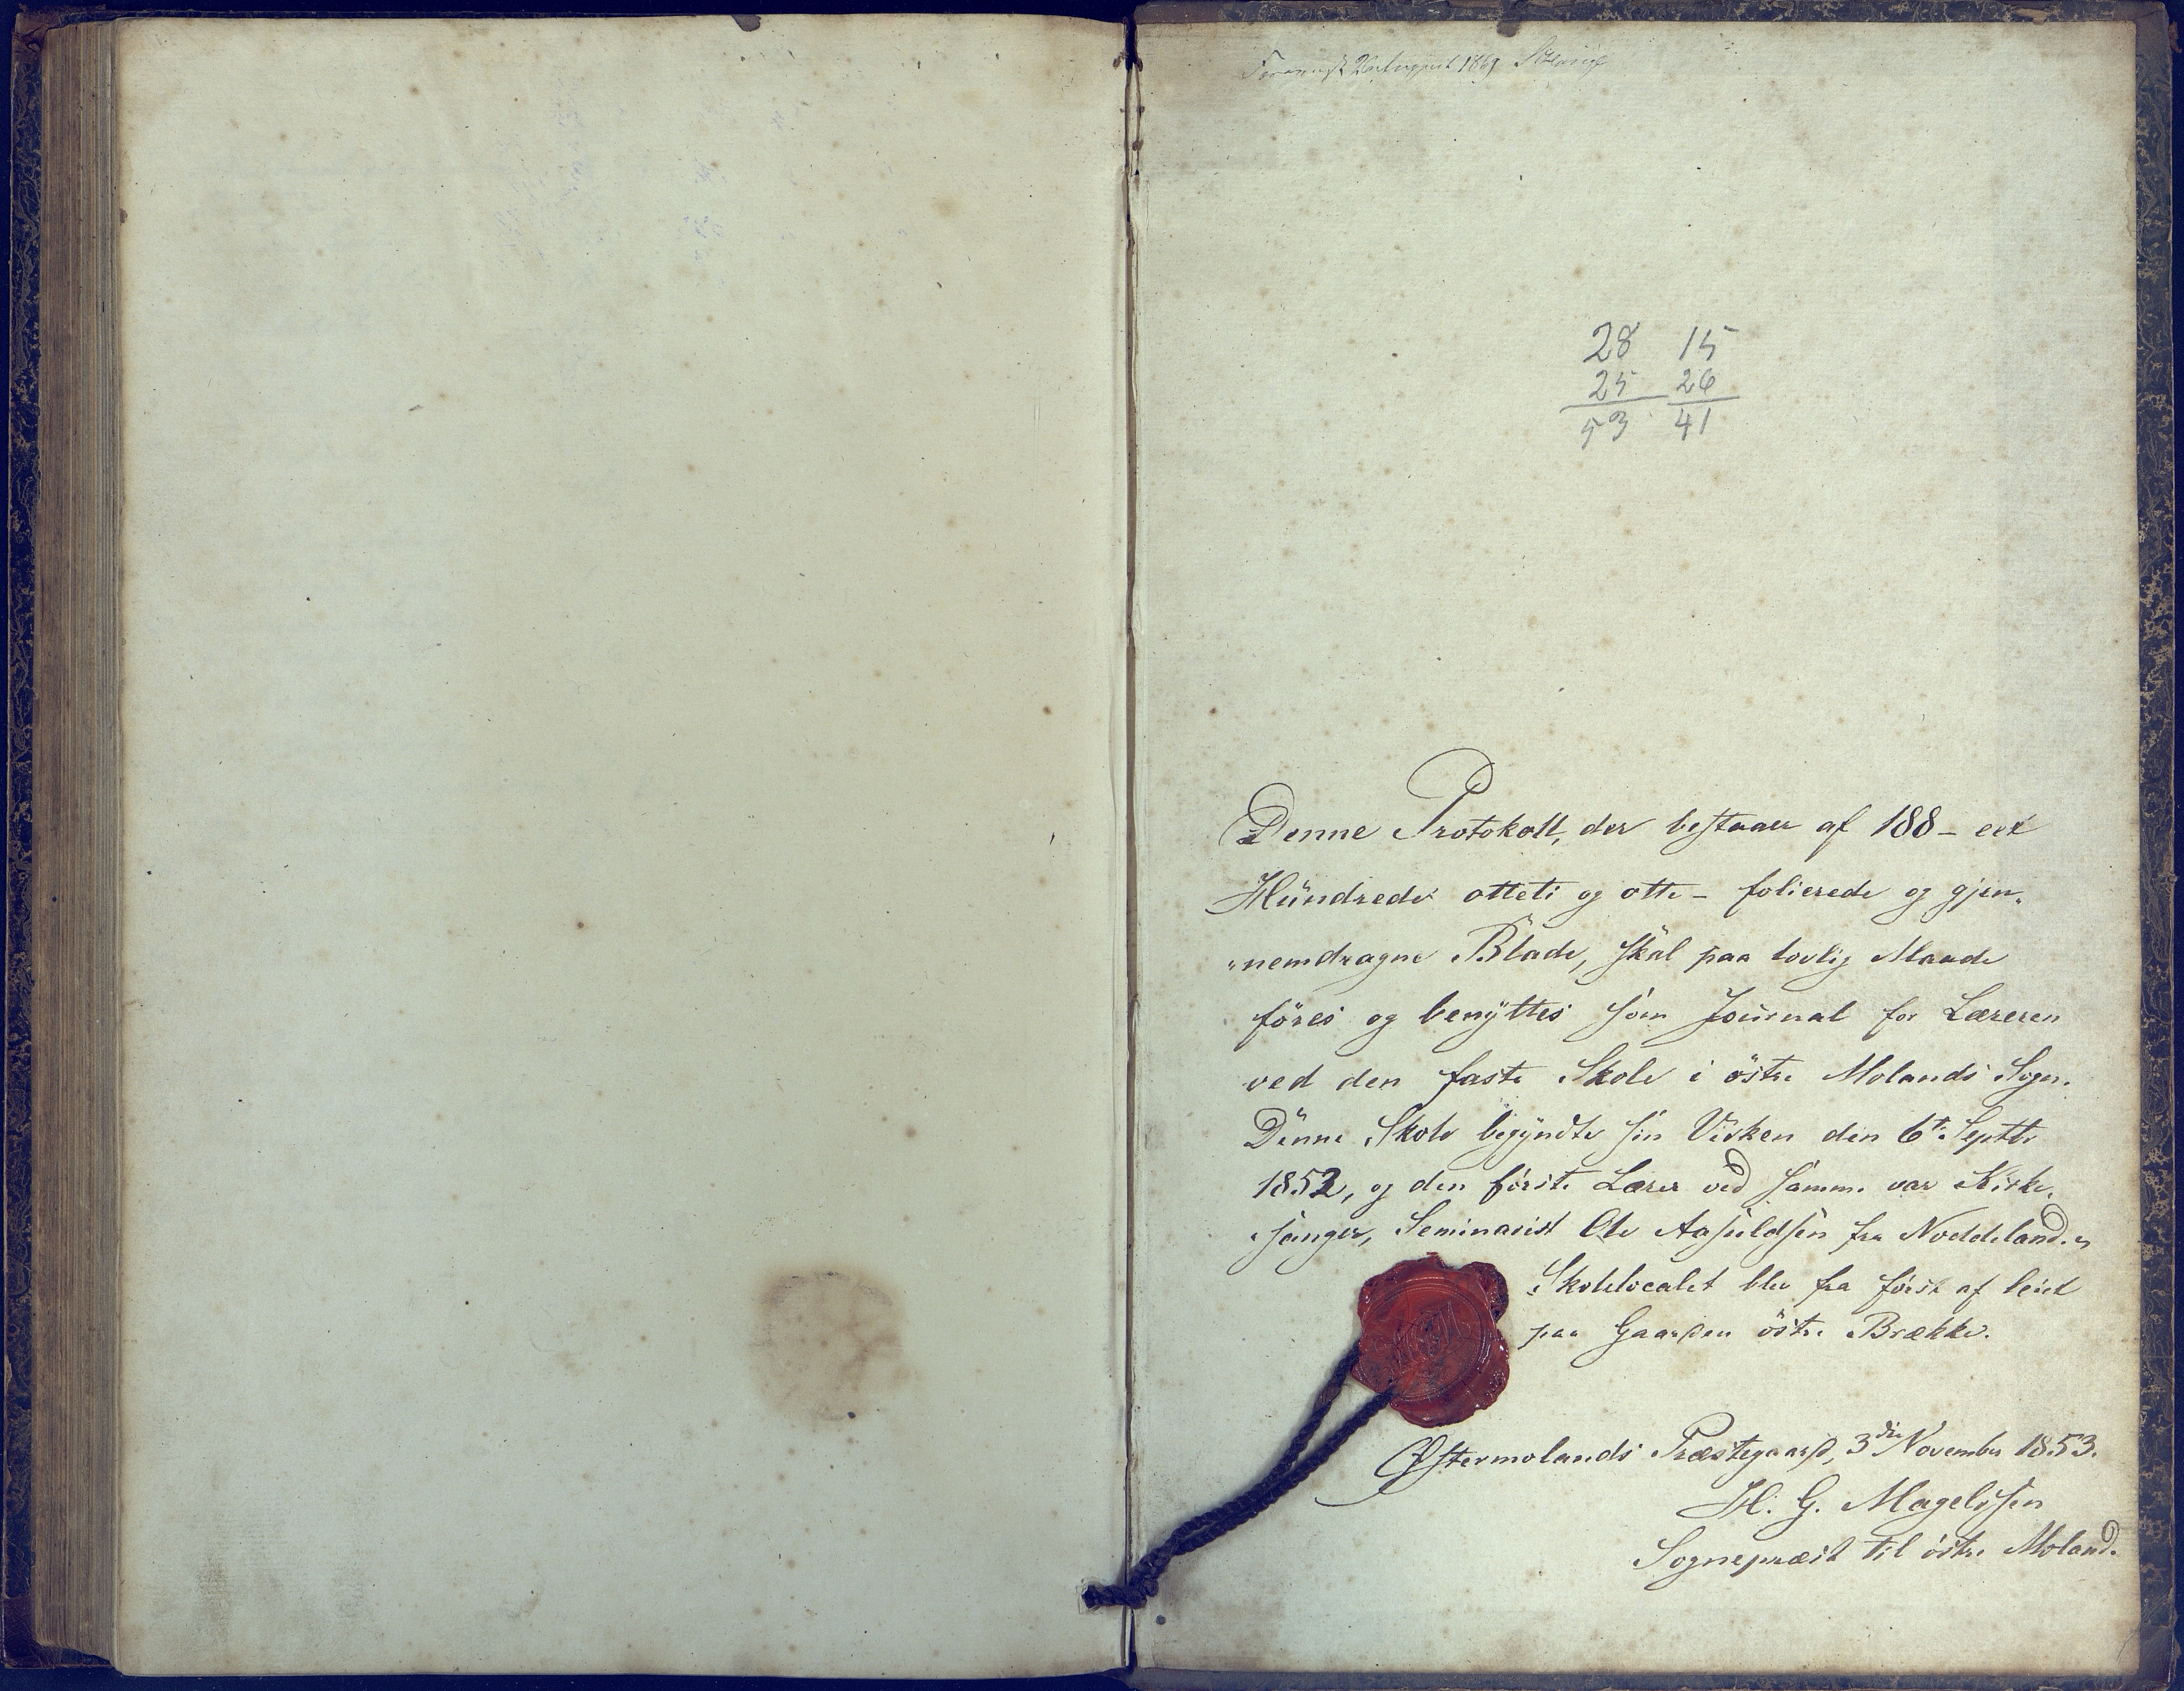 1869
28 15
25 26
53 41
Denne Protokoll, der bestaaer af 188 - eet
Hundrede otteti og otte - folierede og gjen„
„nemdragne Blade, skal paa lovlig Maade
föres og benyttes som Journal for Læreren
ved den faste Skole i östre Molands Sogn.
Denne Skole begyndte sin Virken den 6te Septbr
1852, og den förste Lærer ved samme var Kirke„
„sanger, Seminarist Ole Aasuldsen fra Noddeland.
Skolelocalet blev fra först af leiet
paa Gaarden östre Brække.
Østermolands Præstegaard, 3die November 1853.
H. G. Magelssen
Sognepræst til östre Moland.